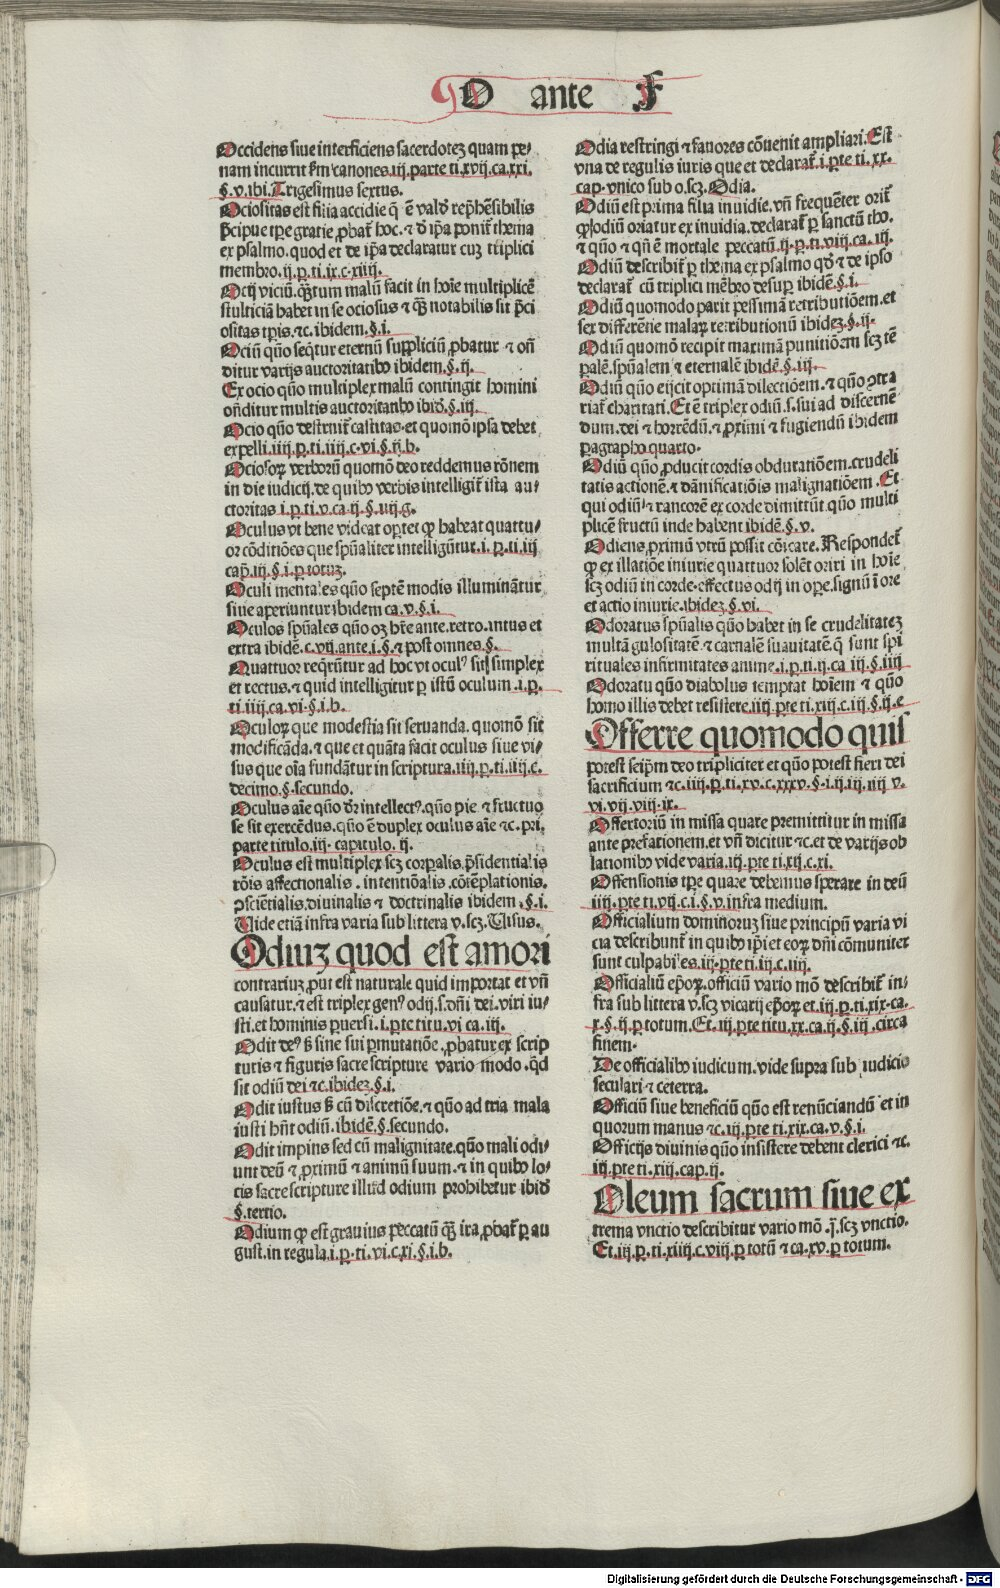 O ante F
Occidens siue interficiens sacerdotez quam pe⸗
nam incurrit km̄ canones.iij.parte ti.xvij.ca.xxi.
§.v.ibi.Trigesimus sextus.
Ociositas est filia accidie q̄ ē valde rep̄hēsibilis
p̄cipue tp̄e gratie ꝓbat̄ hoc.⁊ d̄ ip̄a ponit̄ thema
ex psalmo.quod et de ip̄a declaratur cuz triplici
membro.ij.p.ti.ix.c.xiiij.
Ocij viciū.q̄ꝫtum malū facit in hoīe multiplicē
stulticiā habet in se ociosus ⁊ q̄ꝫ notabilis sit p̄ci
ositas tp̄is.⁊c.ibidem.§.i.
Ociū quō seq̄tur eternū suppliciū ꝓbatur ⁊ oñ
ditur varijs auctoritatibꝰ ibidem.§.ij.
Ex ocio quō multiplex malū contingit homini
oñditur multis auctoritatibꝰ ibid̄.§.iij.
Ocio quō destruit̄ castitas.et quomō ipsa debet
expelli.iiij.p.ti.iiij.c.vi.§.ij.b.
Ociosoꝝ verborū quomō deo reddemus rōnem
in die iudicij.de quibꝰ verbis intelligit̄ ista au⸗
ctoritas i.p.ti.v.ca.ij.§.iiij.g.
Oculus vt bene videat oꝑtet ꝙ habeat quattu⸗
or cōditiōes que spūaliter intelligūtur.i.p.ti.iij
cap̄.iij.§.i.ꝑ totuz.
Oculi mentales quō septē modis illuminātur
siue aperiuntur ibidem ca.v.§.i.
Oculos spūales quō oꝫ hr̄e ante.retro.intus et
extra ibidē.c.vij.ante.i.§.⁊ post omnes.§.
Quattuor req̄rūtur ad hoc vt oculꝰ sit simplex
et rectus.⁊ quid intelligitur ꝑ istū oculum.i.p.
ti.iiij.ca.vi.§.i.b.
Oculoꝝ que modestia sit seruanda.quomō sit
modificāda.⁊ que et quāta facit oculus siue vi⸗
sus que oīa fundātur in scriptura.iiij.p.ti.iiij.c.
decimo.§.secundo.
Oculus aīe quō dr̄ intellectꝰ.quō pie ⁊ fructuo
se sit exercēdus.quō ē duplex oculus aīe ⁊c.pri.
parte titulo.iij.capitulo.ij.
Oculus est multiplex scꝫ corꝑalis.p̄sidentialis
rōis affectionalis.intentiōalis.cōtēplationis.
ꝯscientialis.diuinalis ⁊ doctrinalis ibidem.§.i.
Vide etiā infra varia sub littera v.scꝫ.Visus.
Odiuz quod est amori
contrariuz ꝓut est naturale quid importat et vñ
causatur.⁊ est triplex genꝰ odij.s.dñi dei.viri iu⸗
sti.et hominis ꝑuersi.i.ꝑte titu.vi ca.iij.
Odit deꝰ s̄ sine sui ꝑmutatiōe.ꝓbatur ex scrip
turis ⁊ figuris sacre scripture vario modo.qd̄
sit odiū dei ⁊c.ibidez.§.i.
Odit iustus s̄ cū discretiōe.⁊ quō ad tria mala
iusti hn̄t odiū.ibidē.§.secundo.
Odit impius sed cū malignitate.quō mali odi⸗
unt deū ⁊ ꝓximū ⁊ animū suum.⁊ in quibꝰ lo⸗
cis sacre scripture illud odium prohibetur ibid̄
§.tertio.
Odium ꝙ est grauius peccatū q̄ꝫ ira.ꝓbat̄ ꝑ au
gust.in regula.i.p.ti.vi.c.xi.§.i.b.
Odia restringi ⁊ fauores cōuenit ampliari.Est
vna de regulis iuris que et declarat̄.i.ꝑte ti.xx.
cap̄.vnico sub o.scꝫ.Odia.
Odiū est prima filia inuidie.vñ frequēter orit̄
ꝙ sodiū oriatur ex inuidia.declarat̄ ꝑ sanctū tho.
⁊ quō ⁊ qñ ē mortale peccatū.ij.p.ti.viij.ca.iij.
Odiū describit̄ ꝑ thema ex psalmo qd̄ ⁊ de ipso
declarat̄ cū triplici mēbro desuꝑ ibidē.§.i.
Odiū quomodo parit pessimā retributiōem.et
sex differētie malaꝝ retributionū ibidez.§.ij.
Odiū quomō recipit maximā punitiōem scꝫ tē
ꝑalē.spūalem ⁊ eternalē ibidē.§.iij.
Odiū quō eijcit optimā dilectiōem.⁊ quō ꝯtra
riat̄ charitati.Et ē triplex odiū.s.sui ad discernē
dum.dei ⁊ horrēdū.⁊ ꝓximi ⁊ fugiendū ibidem
ꝑagrapho quarto.
Odiū quō ꝓducit cordis obduratiōem.crudeli
tatis actionē.⁊ dānificatiōis malignatiōem.Et
qui odiū ⁊ rancorē ex corde dimittūt quō multi
plicē fructū inde habent ibidē.§.v.
Odiens ꝓximū vtrū possit cōicare.Respondet̄
ꝙ ex illatiōe iniurie quattuor solēt oriri in hoīe
scꝫ odiū in corde.effectus odij in oꝑe.signū ī ore
et actio iniurie.ibidez.§.vi.
Odoratus spūalis quō habet in se crudelitatez
multā gulositatē.⁊ carnalē suauitatē.q̄ sunt spi
rituales infirmitates anime.i.p.ti.ij.ca iij.§.iiij
Odoratu quō diabolus temptat hoīem ⁊ quō
homo illis debet resistere.iiij.ꝑte ti.xiij.c.iij.§.ij.e
Offerre quomodo quis
potest seip̄m deo tripliciter et quō potest fieri dei
sacrificium ⁊c.iiij.p.ti.xv.c.xxxv.§.i.ij.iij.iiij v.
vi.vij.viij.ix.
Offertoriū in missa quare premittitur in missa
ante prefationem.et vñ dicitur ⁊c.et de varijs ob
lationibꝰ vide varia.iij.ꝑte ti.xij.c.xi.
Offensionis tp̄e quare debemus sperare in deū
iiij.ꝑte ti.vij.c.i.§.v.infra medium.
Officialium dominoruz siue principū varia vi
cia describunt̄ in quibꝰ ip̄i et eoꝝ dñi cōmuniter
sunt culpabiles.iij.ꝑte ti.iij.c.iiij.
Officialiū ep̄oꝝ.officiū vario mō describit̄ in⸗
fra sub littera v.scꝫ vicarij ep̄oꝝ et.iij.p.ti.xix.ca.
x.§.ij.ꝑ totum.Et.iij.ꝑte titu.xx.ca.ij.§.iij.circa
finem.
De officialibꝰ iudicum.vide supra sub iudicio
seculari ⁊ cetera.
Officiū siue beneficiū quō est renūciandū et in
quorum manus ⁊c.ij.ꝑte ti.xix.ca.v.§.i.
Officijs diuinis quō insistere debent clerici ⁊c.
iij.ꝑte ti.xiij.cap̄.ij.
Oleum sacrum siue ex
trema vnctio describitur vario mō.j̄.scꝫ vnctio.
Et.iij.p.ti.xiiij.c.viij.ꝑ totū ⁊ ca.xv.ꝑ totum.
Digitalisierung gefördert durch die Deutsche Forschungsgemeinschaft - DFG